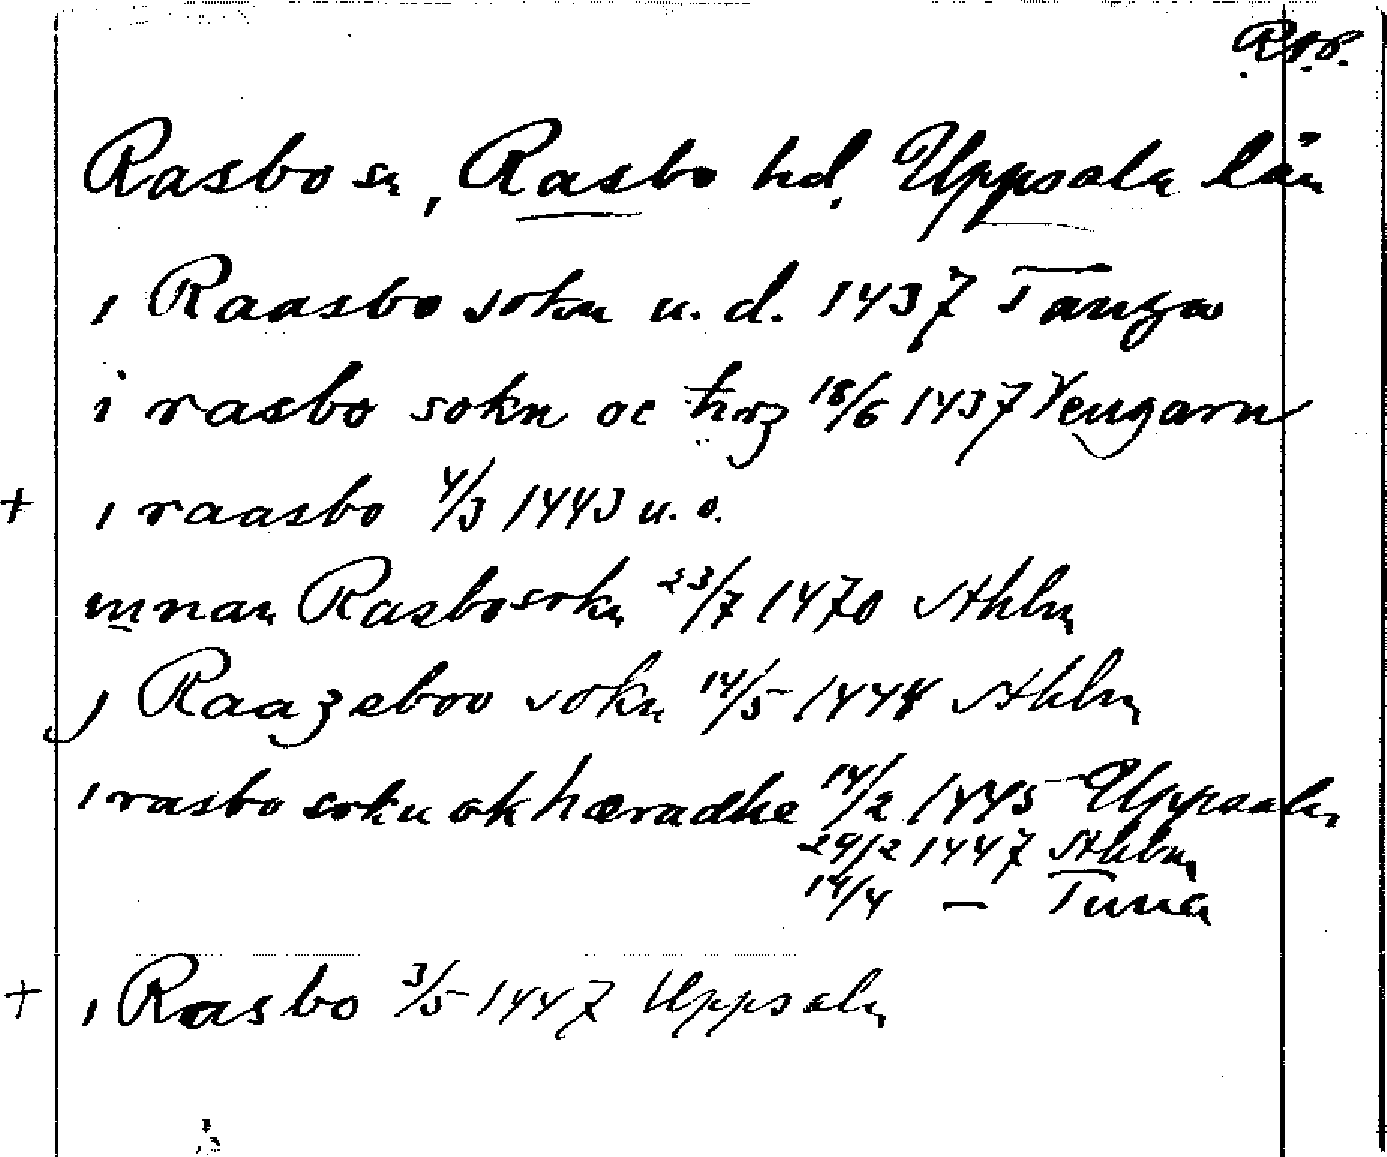 R.A.P.
Rasbo sn, Rasbo hd. Uppsala län
i Raasbo sokn u. d. 1437 Tanga
i rasbo sokn oc hrz 18/6 1437 Vengarn
+ i raasbo 4/3 1443 u. o.
innan Rasbosokn 23/7 1470 Sthlm
j Raazeboo sokn 14/5 1444 Sthlm
i rasbo sokn ok hæradhe 14/2 1445 Uppsala
29/2 1447 Sthlm
14/4 — Tuna
+ i Rasbo 3/5 1447 Uppsala